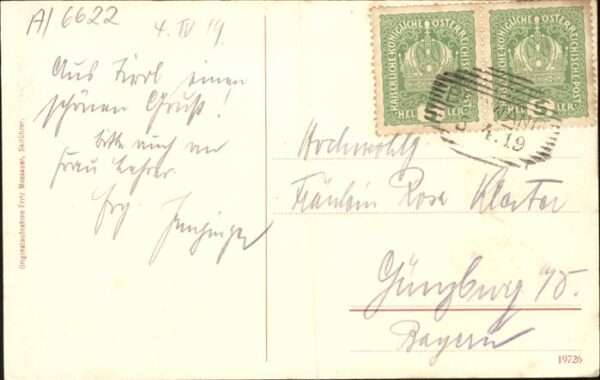 A/ 6622
4. IV 19.
Aus Tirol einen
schönen Gruß!
bitte auch an
Frau Lehrer
Originalaufnahme Fritz
KAISERLICHE KÖNIGLICHE ÖSTERREICHISCHE POST
HELLER
KAISERLICHE KÖNIGLICHE ÖSTERREICHISCHE POST
5 HELLER
4.19
Hochwohlg
Fräulein Rosa Kloster
Günzburg a/D.
Bayern
19726